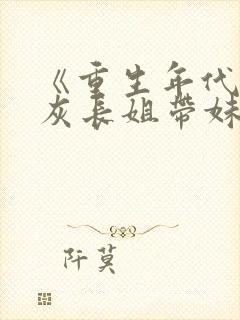 《重生年代
灰长姐带妹
阡莫